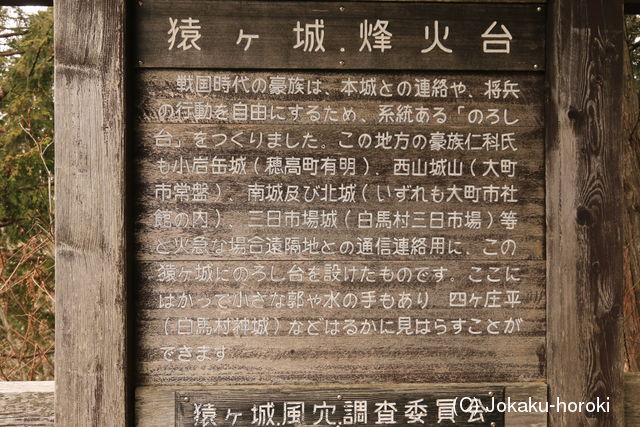 猿ヶ城.烽火台
戦国時代の豪族は、本城との連絡や、将兵
の行動を自由にするため、系統ある「のろし
台」をつくりました。この地方の豪族仁科氏
も小岩缶城(穂高町有明)、西山城山(大町
市常盤)、南城及び北城(いずれも大町市社
館の内) 三日市場城(白馬村三日市場)等
と火急な場合遠隔地との通信連絡用に、この
猿ヶ城にのろし台を設けたものです。ここに
はかつて小さな郭や水の手もあり 四ヶ庄平
(白馬村神城)などはるかに見はらすことが
できます
猿ヶ城.風穴.調査委員会
(C)Jokaku-horoki